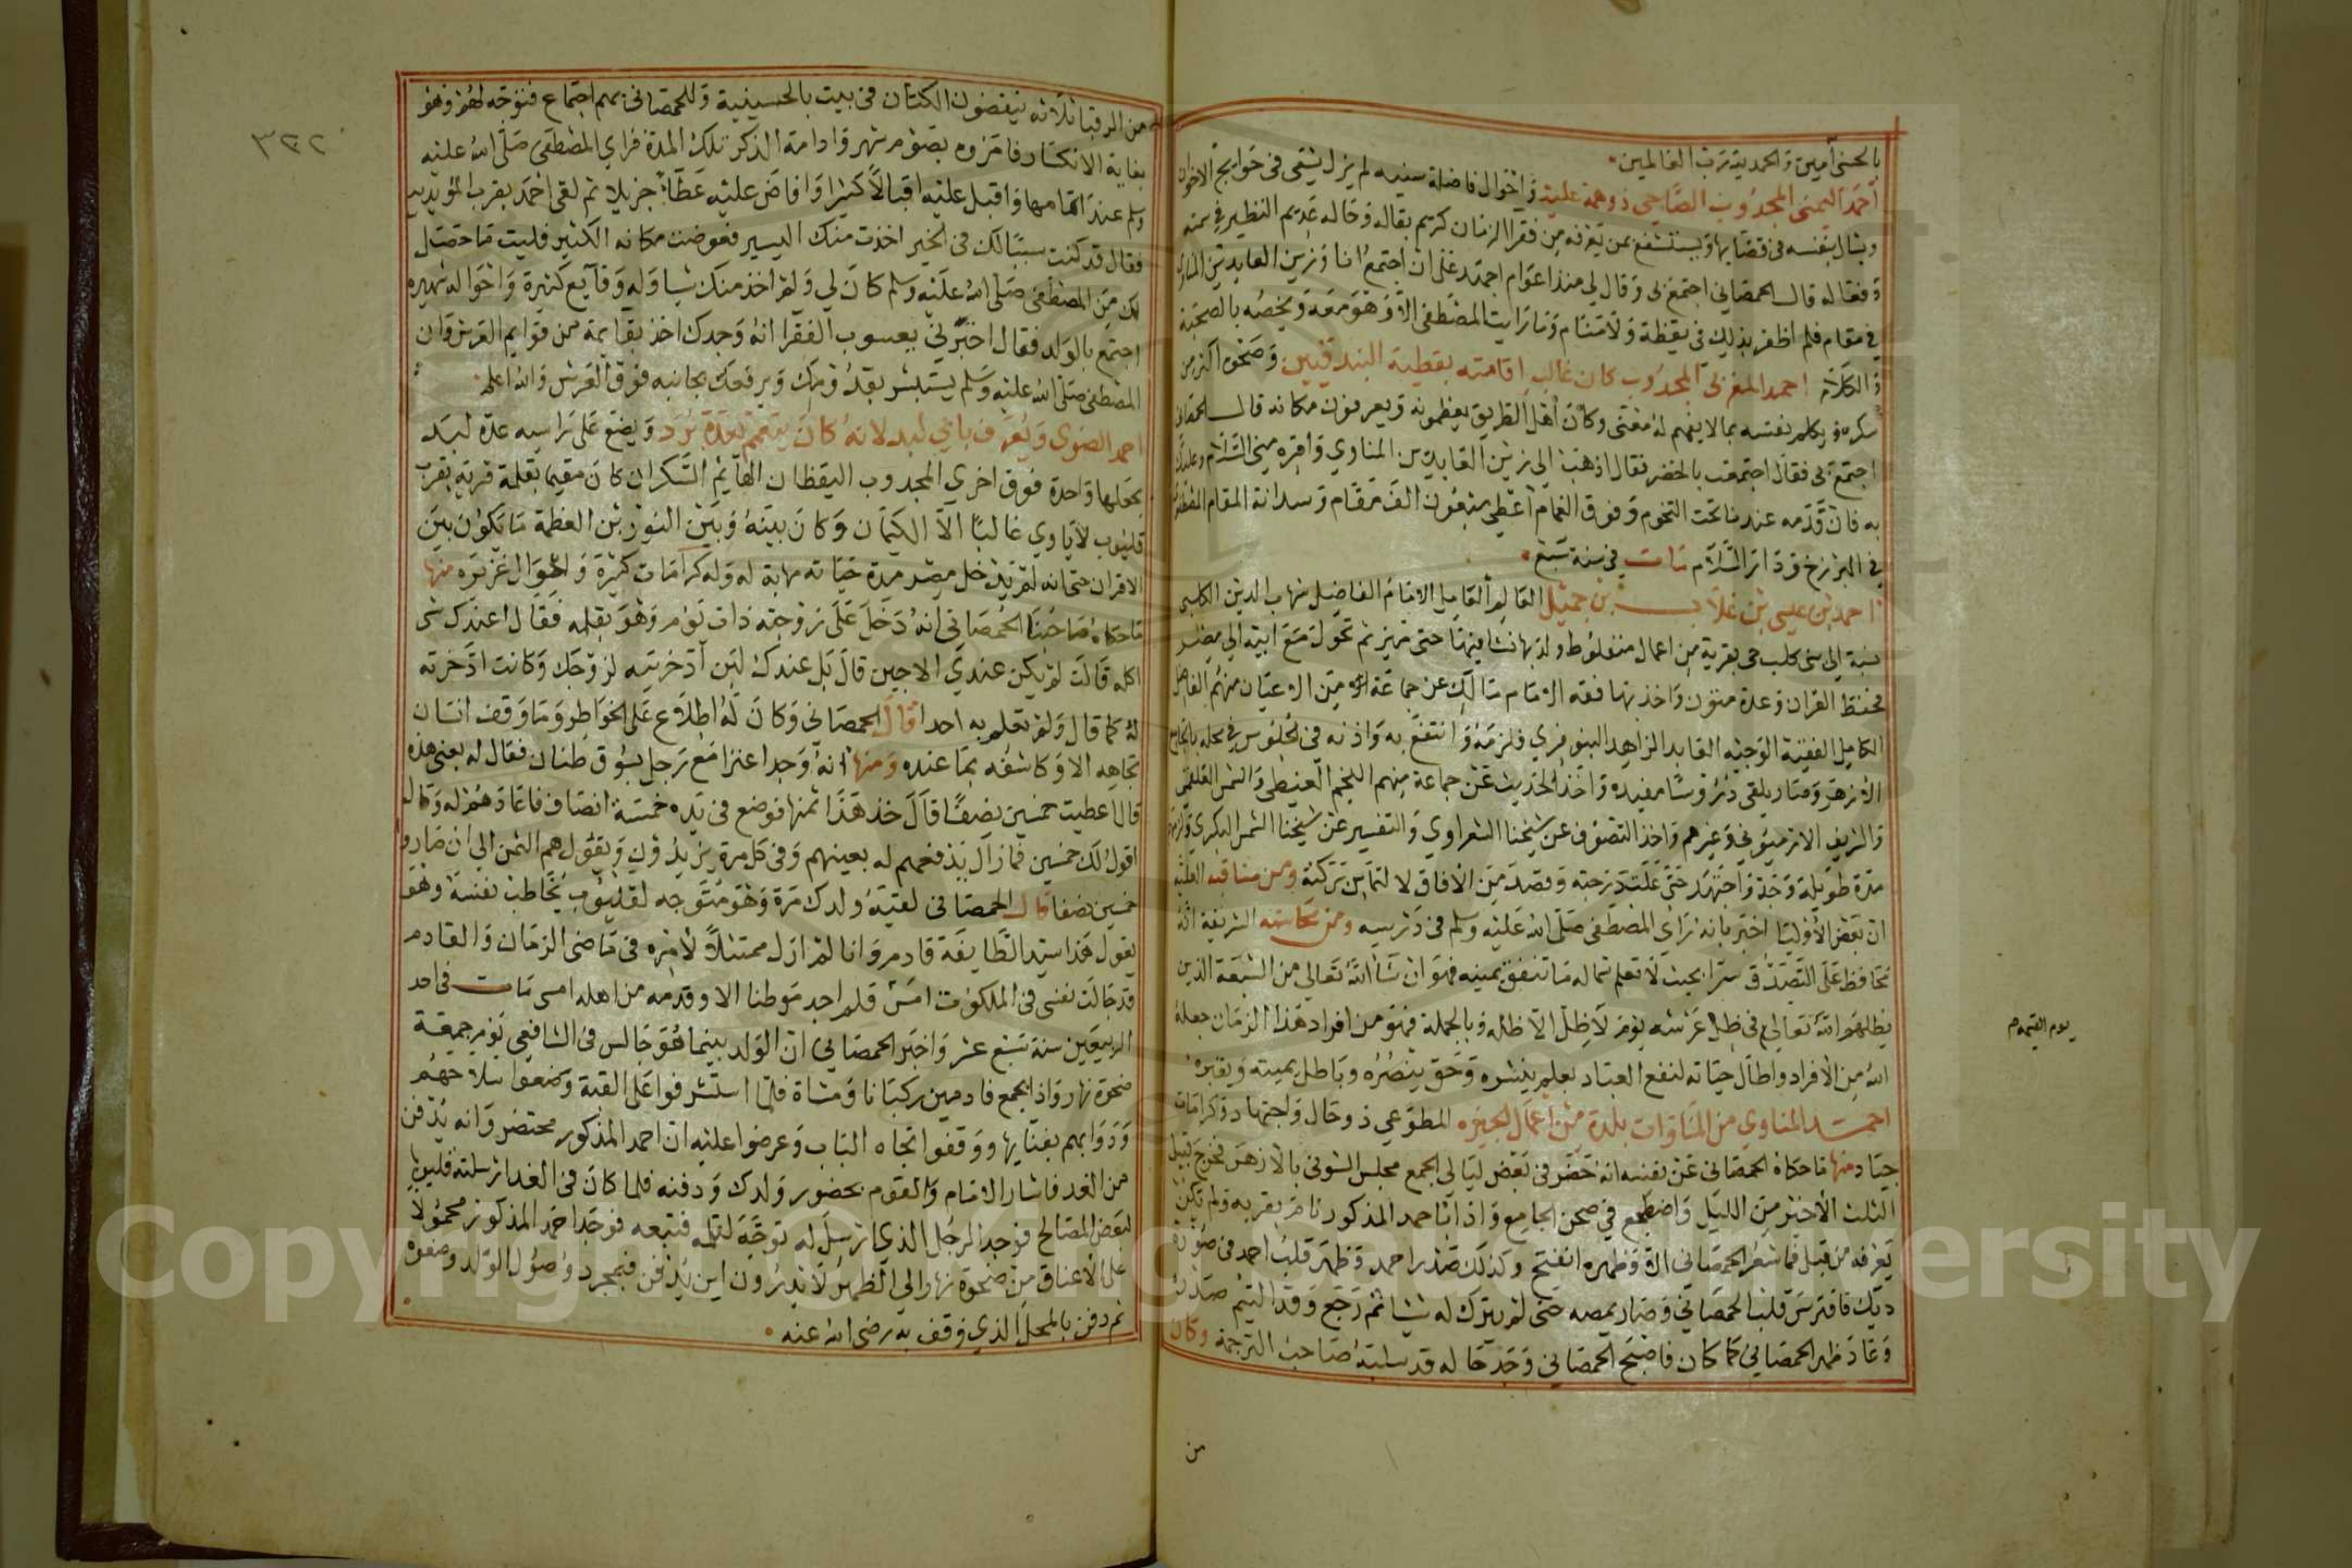 بالحسنى آمين والحمد لله رب العالمين
أحمد اليمنى المجذوب الصاحى ذو همة علية وأحوال فاضلة سنيه لم يزل يشقى فى حوايج الاخوان
ويسال بنفسه فى قضايها ويستشفع بمن يعرفه من فقرا الزمان كريم بقاله وحاله عديم النظير فى سمته
وفعاله قال الحمصانى اجتمع بى وقال لى منذ اعوام اجهد على ان اجتمع انا وزين العابدين المناوى
فى مقام فلم اظفر بذلك فى يقظة ولا منام وما رايت المصطفى الا وهو معه ويخصه بالصحبة
والكلام احمد المغربى المجذوب كان غالب اقامته بقطية البندقيين وصحوه اكثر من
سكره ويكلم نفسه بما لا يفهم له معنى وكان أهل الطريق يعظمونه ويعرفون مكانه قال الحمصانى
اجتمع بى فقال اجتمعت بالخضر فقال اذهب الى زين العابدين المناوي واقره منى السلام
به فان قدمه عندنا تحت التخوم وفوق الغمام اعطى سبعون الف مقام وسدانة المقام
فى البرزخ ودار السلام مات فى سنة سبع
احمد بن عيسى بن غلاب بن جميل العالم العامل الامام الفاضل شهاب الدين الكلبى
نسبة الى بنى كلب حى بقرية من اعمال منفلوط ولد بها نشا فيها حتى تميز ثم تحول مع ابيه الى مصر
فحفظ القران وعدة متون واخذ بها فقه الامام مالك عن جماعة من الاعيان منهم الفاضل
الكامل الفقيه الوجيه العابد الزاهد البنوفري ولزمه وانتفع به واذنه فى الجلوس فى محله بالجامع
الأزهر وصار يلقى دروسًا مفيده واخذ الحديث عن جماعة منهم النجم الغيطى والشمس العلقمى
والشريف الارميونى وغيرهم واخذ التصوف عن شيخنا الشعراوي والتفسير عن شيخنا الشمس البكري
مدة طويلة وجد واجتهد حتى علت درجته وقصد من الافاق لالتماس بركته ومن مناقبه العلية
ان بعض الأوليا اخبر بانه رأى المصطفى صلى الله عليه وسلم فى درسه ومن محاسنه الشريفة انه
محافظ على التصدق سرا بحيث لا تعلم شماله ما تنفق يمينه فهو ان شا الله تعالى من السبعة الذين
يظلهم الله تعالى فى ظل عرشه يوم لا ظل الا ظله وبالجملة فهو من افراد هذا الزمان جعله
الله من الأفراد واطال حياته لنفع العباد بعلم ينشره وحق ينصره وباطل يميته ويقبره
احمد المناوى من المناوات بلدة من أعمال الجيزه المطوعي ذو حال واجتهاد وكرامات
جياد منها ما حكاه الحمصانى عن نفسه انه حضر فى بعض ليالى الجمع مجلس الشونى بالأزهر فخرج قبيل
الثلث الأخير من الليل واضطجع في صحن الجامع واذا باحمد المذكور نام بقربه ولم تكن
يعرفه من قبل فما شعر الحمصانى الا وظهره انفتح وكذلك صدر احمد وظهر قلب احمد فى صورة
ديك فافترس قلب الحمصانى وصار يمصه حتى لم يترك له شيا ثم رجع وقد التيم صدره
وعاد ظهر الحمصانى كما كان فاصبح الحمصانى وجد حاله قد سلبه صاحب الترجمة وكان
من
يوم القيمه
٣٢٢
من الرقبا ثلاثه ينفضون الكتان فى بيت بالحسينية وللحمصانى بهم اجتماع فتوجه لهم وهو
بغاية الانكسار فامروه بصوم شهر وادامة الذكر تلك المدة فراى المصطفى صلى الله عليه
وسلم عند اتمامها واقبل عليه اقبالا كثيرا وافاض عليه عطاءً جزيلا ثم لقى احمد بقرب المؤيديه
فقال قد كنت سببًا لك فى الخير اخذت منك اليسير فعوضت مكانه الكثير فليت ما حصل
لك من المصطفى صلى الله عليه وسلم كان لي ولم اخذ منك شيا وله وقآيع كثيرة واحواله شهيره
اجتمع بالولد فقال اخبرني يعسوب الفقرا انه وجدك اخذ بقايمة من قوايم العرش وان
المصطفى صلى الله عليه وسلم يستبشر بقدومك ويرفعك بجانبه فوق العرش والله اعلم
احمد الضوى ويعرف بابي لبد لانه كان يتعمم بعدة برد ويضع على راسه عدة لبد
يجعلها واحدة فوق اخري المجدوب اليقظان الهآيم السكران كان مقيما بقلمة قرية بقرب
قليوب لا ياوي غالبًا الا الكيمان وكان بينه وبين النور بن العظمة ما يكون بين
الاقران حتى انه لم يدخل مصر مدة حياته مهابة له وله كرامات كثيرة واحوال غزيره منها
ما حكاه صاحبنا الحمصانى انه دخل على زوجته ذات يوم وهو بقلمه فقال اعندك شى
اكله قالت لم يكن عندي الا جبن قال بل عندك لبن آدخرتيه لزوجك وكانت ادخرته
له كما قال ولم تعلم به احدا قال الحمصانى وكان له اطلاع على الخواطر وما وقف انسان
تجاهه الا وكاشفه بما عنده ومنها انه وجد اعنزا مع رجل بسوق طنان فقال له بعنى هذه
قال اعطيت خمسين نصفًا قال خذ هذا ثمنها فوضع فى يده خمسة انصاف فاعادهم له وقال
اقول لك خمسين فما زال يدفعهم له بعينهم وفى كل مرة يزيدون ويقول هم الثمن الى ان صاروا
خمسين نصفا قال الحمصانى لقيته ولدك مرة وهو متوجه لقليوب يخاطب نفسه وهو
يقول هذا سيد الطايفة قادم وانا لم ازل ممتثلاً لأمره فى ماضى الزمان والقادم
قد جالت نفسى فى الملكوت امس فلم اجد موطنا الا وقدمه من اهله امسى مات فى احد
الربيعين سنة تسع عشر واخبر الحمصانى ان الولد بينما هو جالس فى الشافعى يوم جمعة
ضحوة نهار واذا بجمع قادمين ركبانا ومشاة فلما استشرفوا على القبة وضعوا سلاحهم
ودوابهم بفنايها ووقفوا تجاه الباب وعرضوا عليه ان احمد المذكور محتضر وانه يدفن
من الغد فاشار الامام والقوم بحضور ولدك ودفنه فلما كان فى الغد ارسلته قليوب
لبعض المصالح فوجد الرجل الذى ارسل له توجه لقلمه فتبعه فوجد احمد المذكور محمولا
على الأعناق من ضحوة نهار الى الظهر لا يدرون اين يدفن فبمجرد وصول الولد وضعوه
ثم دفن بالمحل الذي وقف به رضى الله عنه
Copyright © King Saud University